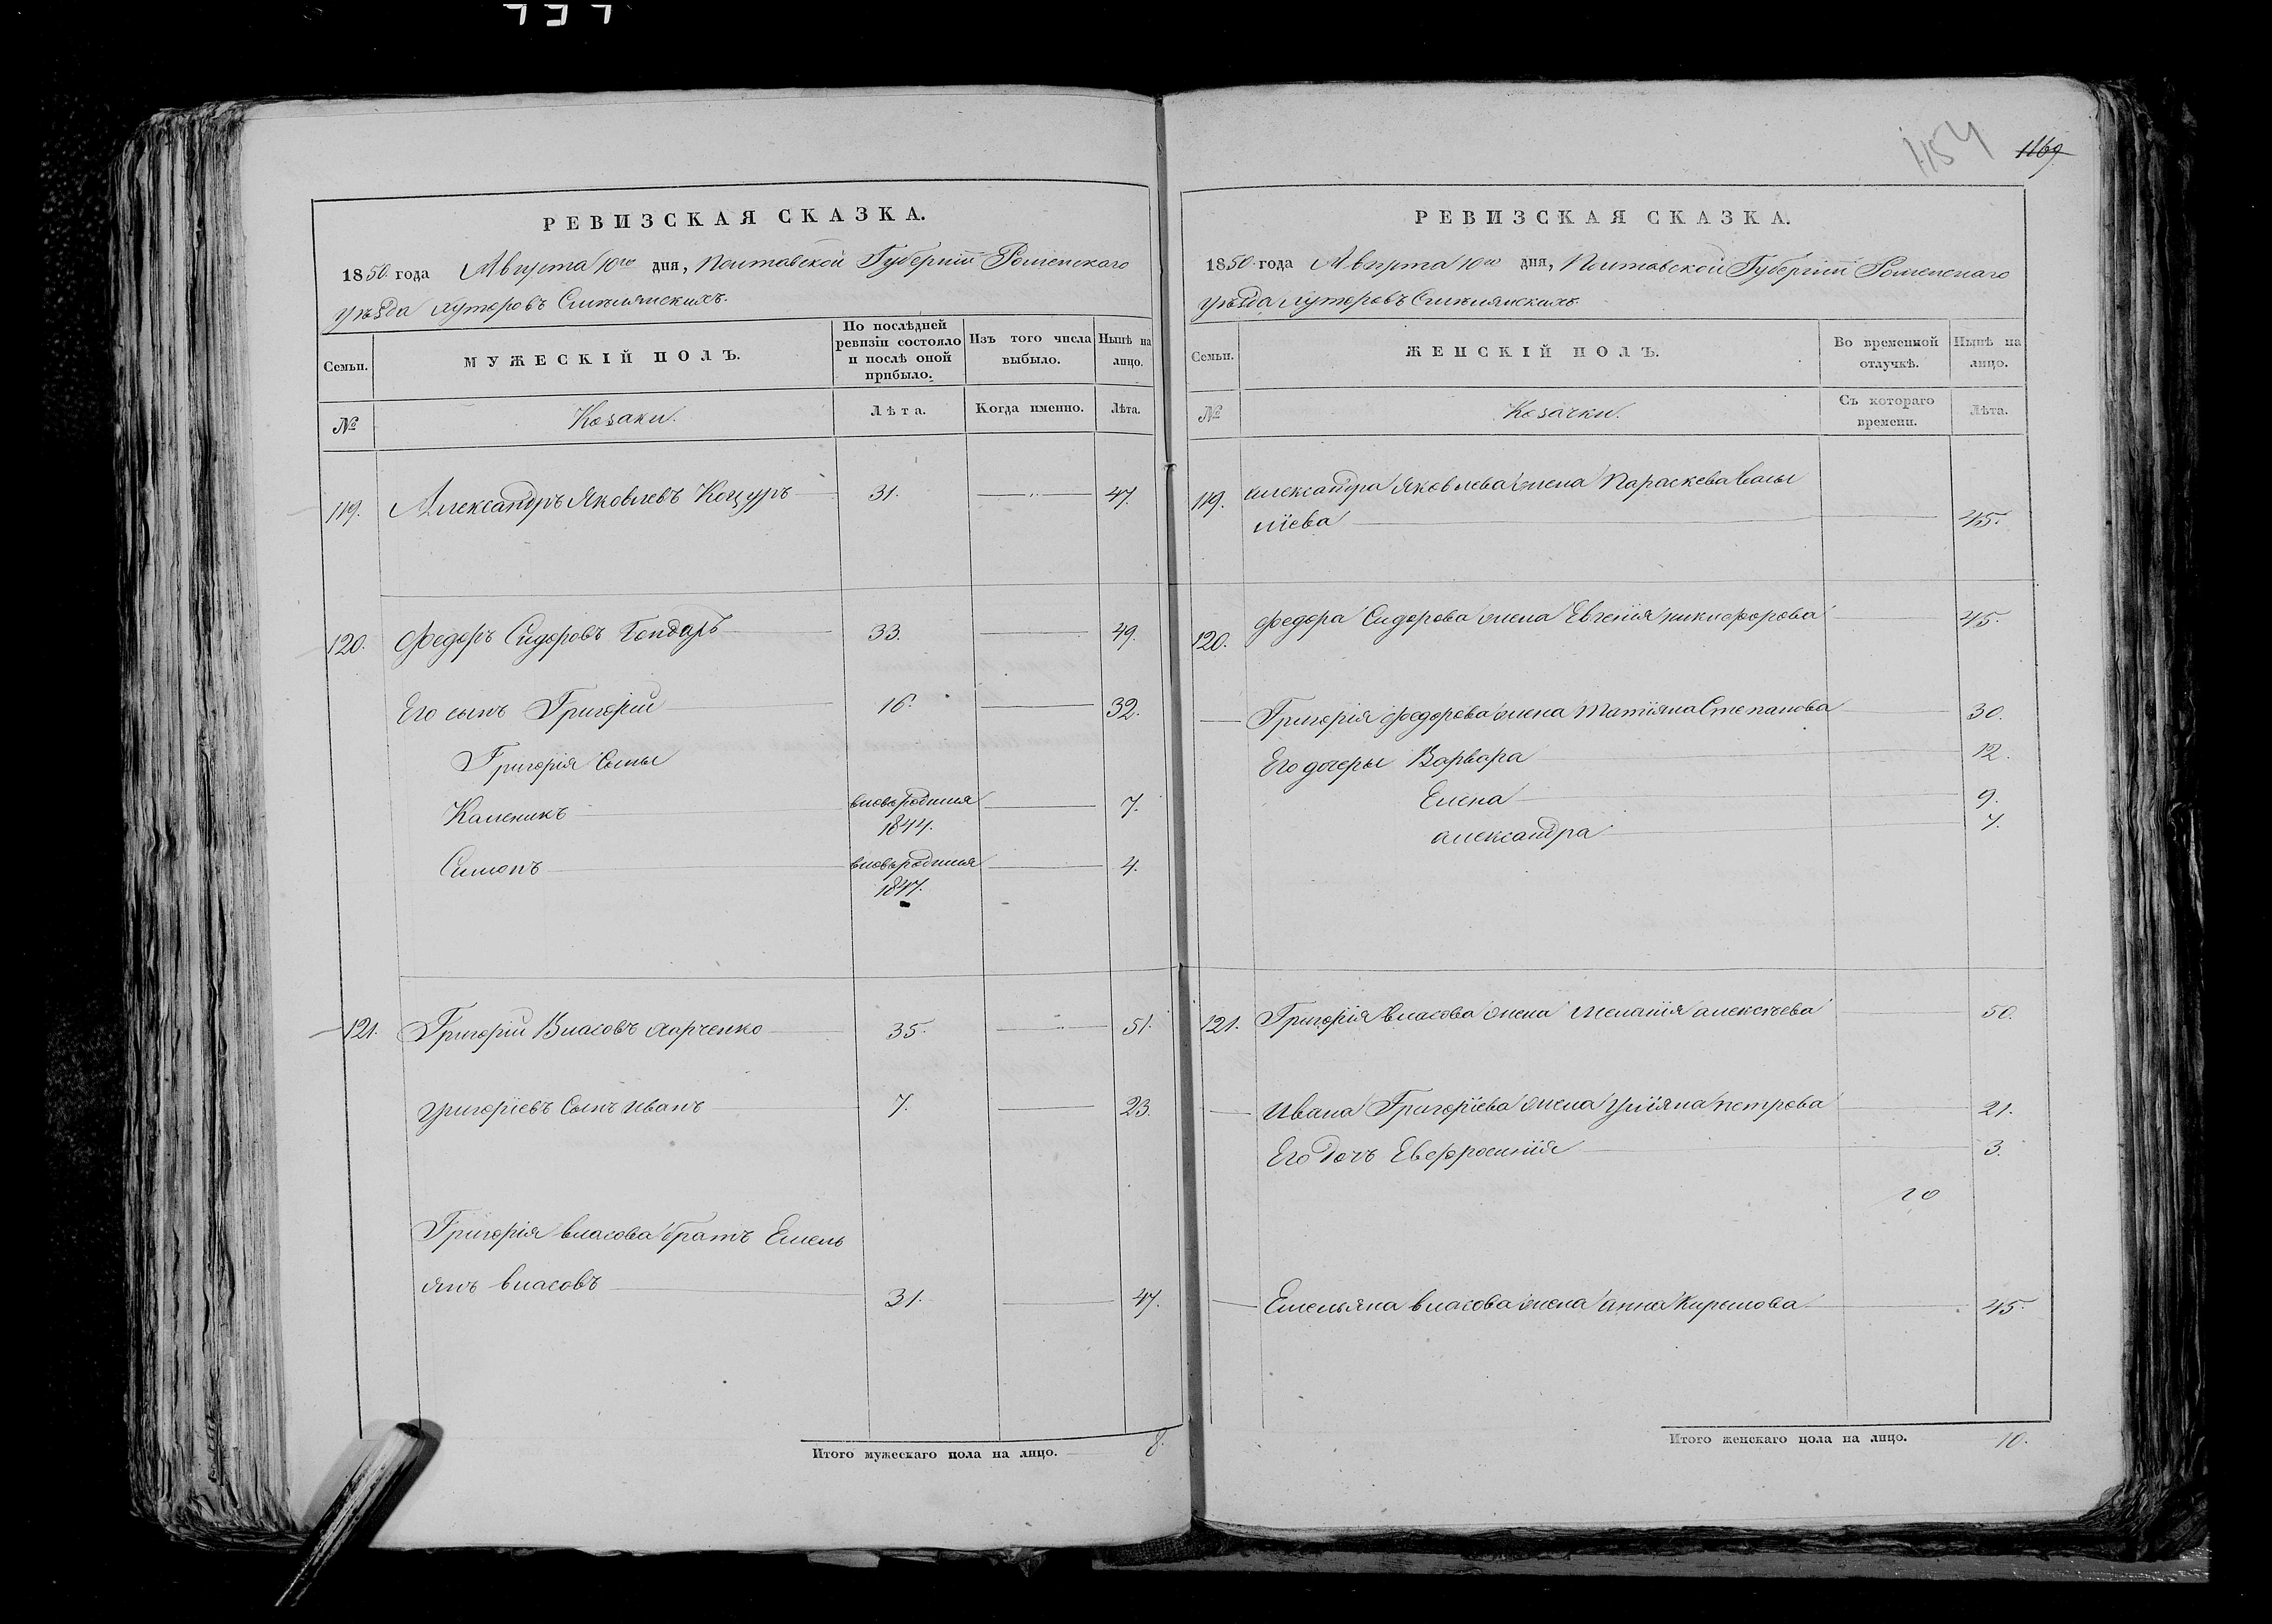 1154
1169
РЕВИЗСКАЯ СКАЗКА.
1850 года Августа 10го дня, Полтавской Губернии Роменскаго
уѣзда хуторовъ
Семьи.
МУЖЕСКІЙ ПОЛЪ.
По послѣдней ревизіи состояло и послѣ оной прибыло.
Изъ того числа выбыло.
Нынѣ на лицо.
№
Козаки.
Лѣта.
Когда именно.
Лѣта.
119. Александръ Яковлевъ Коцуръ 31. 47.
120. Федоръ Сидоровъ Бондарь 33. 49.
Его сынъ Григорій 16. 32.
Григорія Сыны
Каленикъ вновьродился 1844. 7.
Симонъ вновьродился 1847. 4.
121. Григорій Власовъ Харченко 35. 51.
Григоріевъ Сынъ Иванъ 7. 23.
Григорія Власова братъ Емель
янъ Власовъ 31. 47.
Итого мужескаго пола на лицо. 8.
РЕВИЗСКАЯ СКАЗКА.
1850 года Августа 10го дня, Полтавской Губерніи Роменскаго
уѣзда хуторовъ
Семьи.
ЖЕНСКІЙ ПОЛЪ.
Во временной отлучкѣ.
Нынѣ на лицо.
№
Козачки.
Съ котораго времени.
Лѣта.
119. Александра Яковлева жена Параскева Васи
ліева 45.
120. Федора Сидорова жена Евгенія Никифорова 45.
Григорія Федорова жена Татіяна Степанова 30.
Его дочеры Варвара 12.
Елена 9.
Александра 7.
121. Григорія Власова жена Меланія Алексѣева 50.
Ивана Григоріева жена Уліяна Петрова 21.
Его Дочь Евфросинія 3.
10
Емельяна Власова жена Анна Кирилова 45.
Итого женскаго пола на лицо. 10.